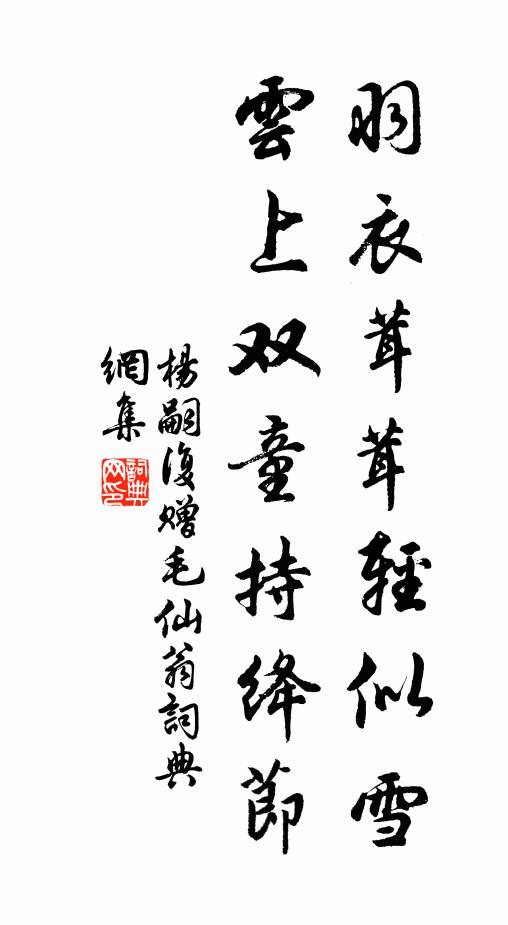 羽衣茸茸輕似雪
雲上双童持绛節
楊嗣復赠毛仙翁詞典
網集
詞典
网印